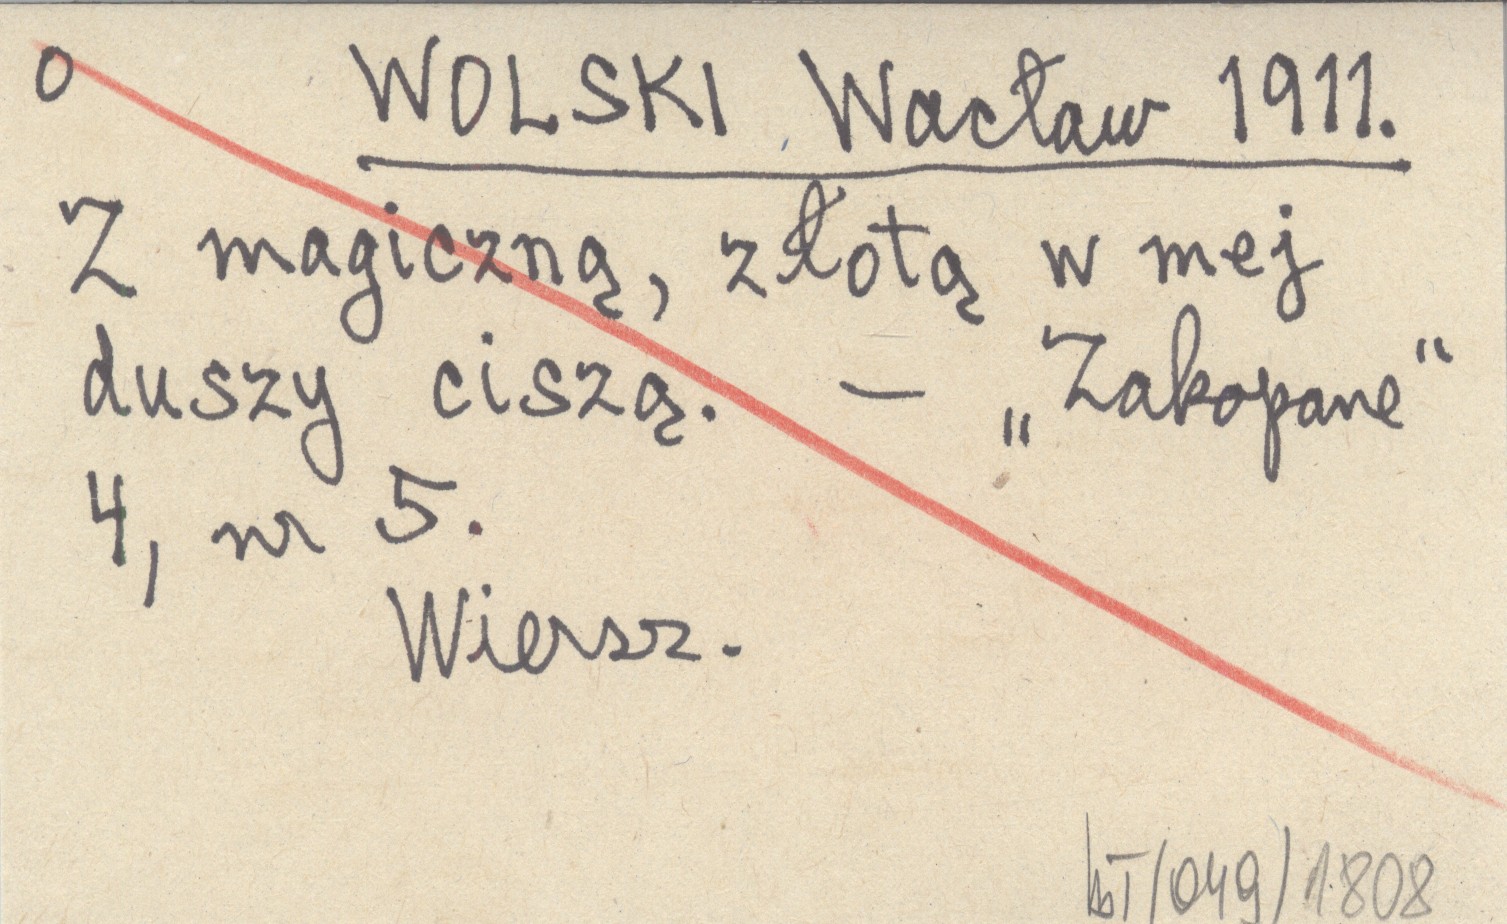 o WOLSKI Wacław 1911.
Z magiczną, złotą w mej
duszy ciszą. — „Zakopane“
4, nr 5.
Wiersz.
/049/1808